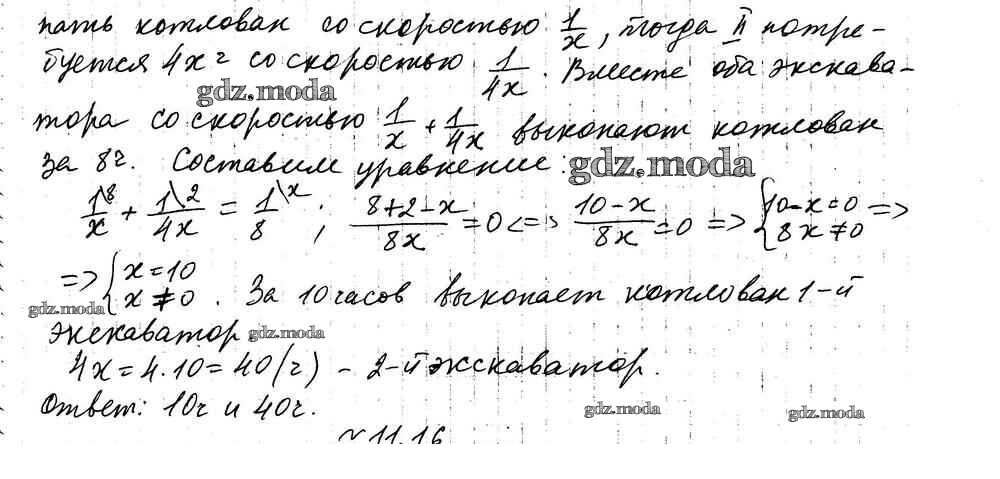 пать котлован со скоростью 1/x, тогда II потре-
буется 4x г со скоростью 1/4x. Вместе оба экскава-
gdz.moda
тора со скоростью 1/x + 1/4x выкопают котлован
за 8г. Составим уравнение:
gdz.moda
1\8/x + 1\2/4x = 1\x/8 ; (8+2-x)/8x = 0 <=> (10-x)/8x = 0 => { 10-x=0 =>
8x≠0
=> { x=10
x≠0 . За 10 часов выкопает котлован 1-й
gdz.moda
экскаватор
gdz.moda
4x = 4.10 = 40 (г) - 2-й экскаватор.
Ответ: 10г и 40г.
gdz.moda
gdz.moda
N 11.16